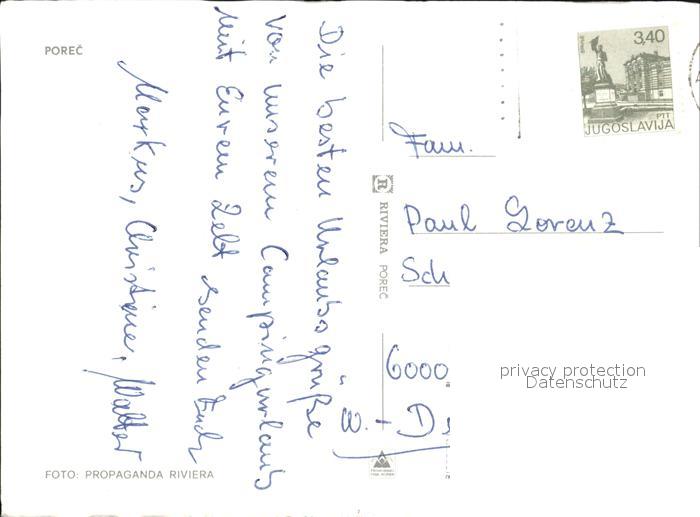 POREČ
Die besten Urlaubsgrüße
von unserem Campingurlaub
mit Eurem Zelt senden Euch
Markus, Christine, Walter
FOTO: PROPAGANDA RIVIERA
RIVIERA POREČ
3,40
PTT
JUGOSLAVIJA
Fam.
Paul Lorenz
Sch
6000
W. - D
privacy protection
Datenschutz